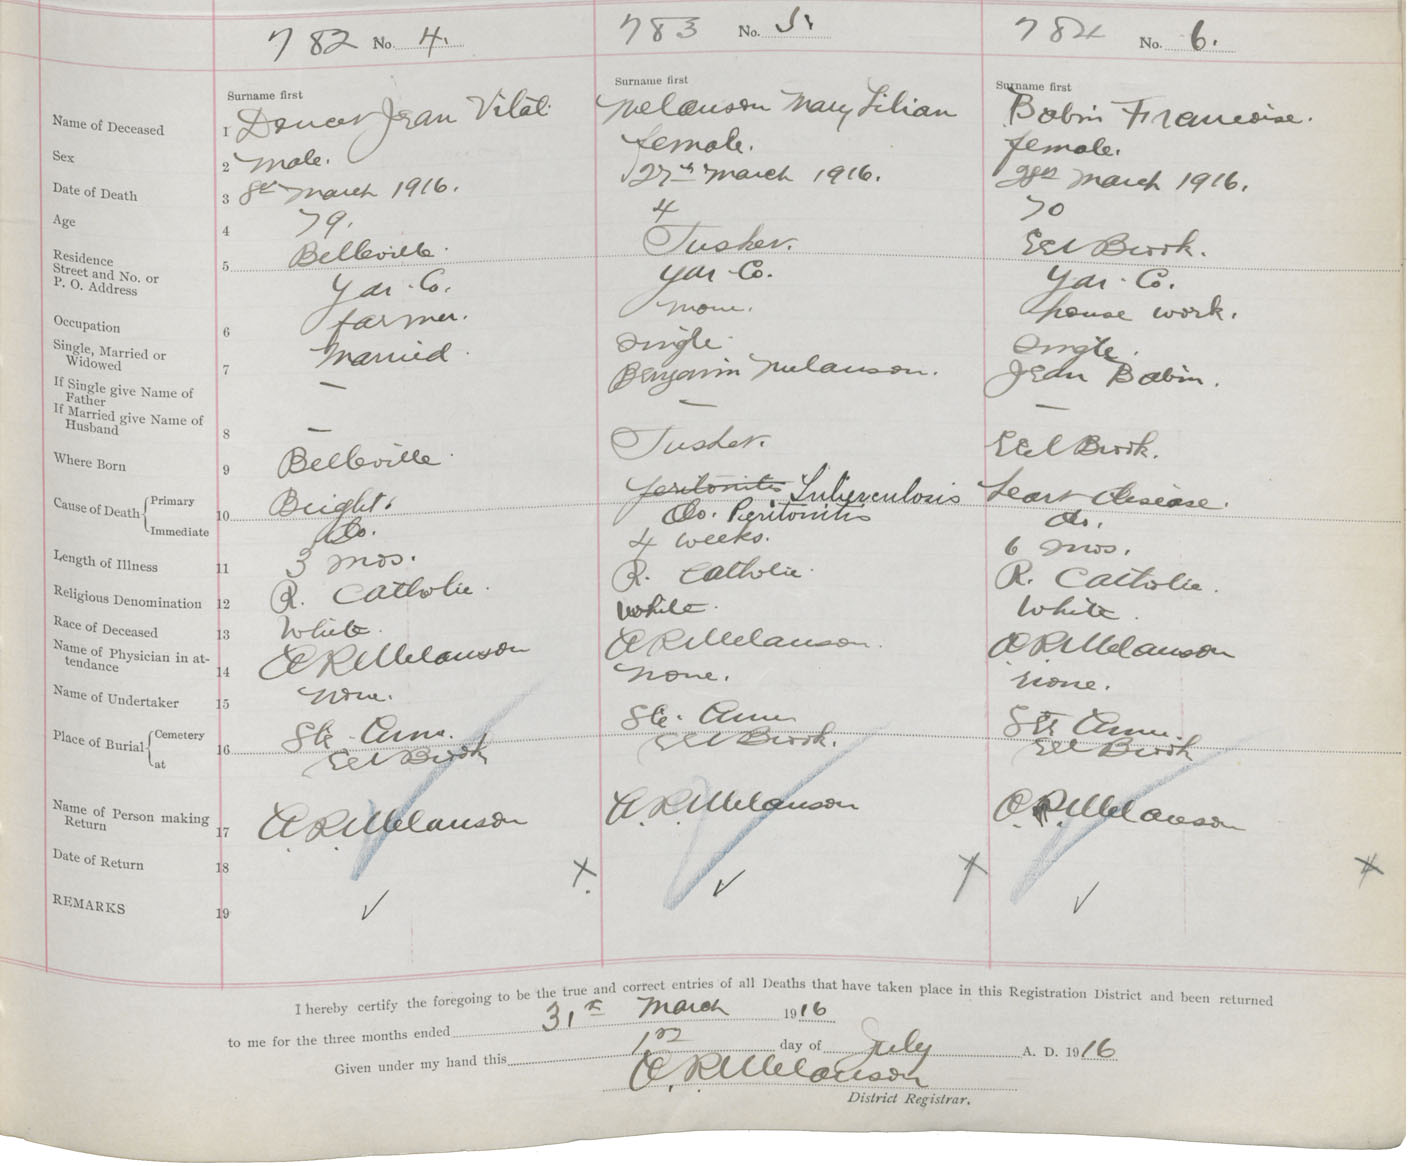 782 No. 4. 783 No. 5. 784 No. 6.
Surname first Surname first Surname first
Name of Deceased 1 Doucet Jean Vital Melanson Mary Lilian Babin Francoise.
Sex 2 male. female. female.
Date of Death 3 8th March 1916. 27th March 1916. 28th March 1916.
Age 4 79. 4 70
Residence
Street and No. or
P. O. Address
5 Belleville. Tusket. Eel Brook.
Yar. Co. Yar Co. Yar. Co.
Occupation 6 farmer. none. house work.
Single, Married or
Widowed
7 Married. Single. Single.
If Single give Name of
Father
— Benjamin Melanson. Jean Babin.
If Married give Name of
Husband
8 — — —
Where Born 9 Belleville. Tusket. Eel Brook.
Cause of Death Primary
Immediate
10 Brights Peritonitis Tuberculosis heart disease.
Do. Do. Peritonitis do.
Length of Illness 11 3 mos. 4 weeks. 6 mos.
Religious Denomination 12 R. Catholic. R. Catholic. R. Catholic.
Race of Deceased 13 White. White. White.
Name of Physician in at-
tendance
14 A R Melanson A R Melanson. A R Melanson
Name of Undertaker 15 none. none. none.
Place of Burial Cemetery
at
16 Ste. Anne. Ste. Anne Ste Anne.
Eel Brook Eel Brook. Eel Brook
Name of Person making
Return
17 A. R. Melanson A. R. Melanson A. R. Melanson
Date of Return 18
REMARKS 19
I hereby certify the foregoing to be the true and correct entries of all Deaths that have taken place in this Registration District and been returned
to me for the three months ended 31st March 1916
Given under my hand this 1st day of July A. D. 1916
A. R. Melanson
District Registrar.